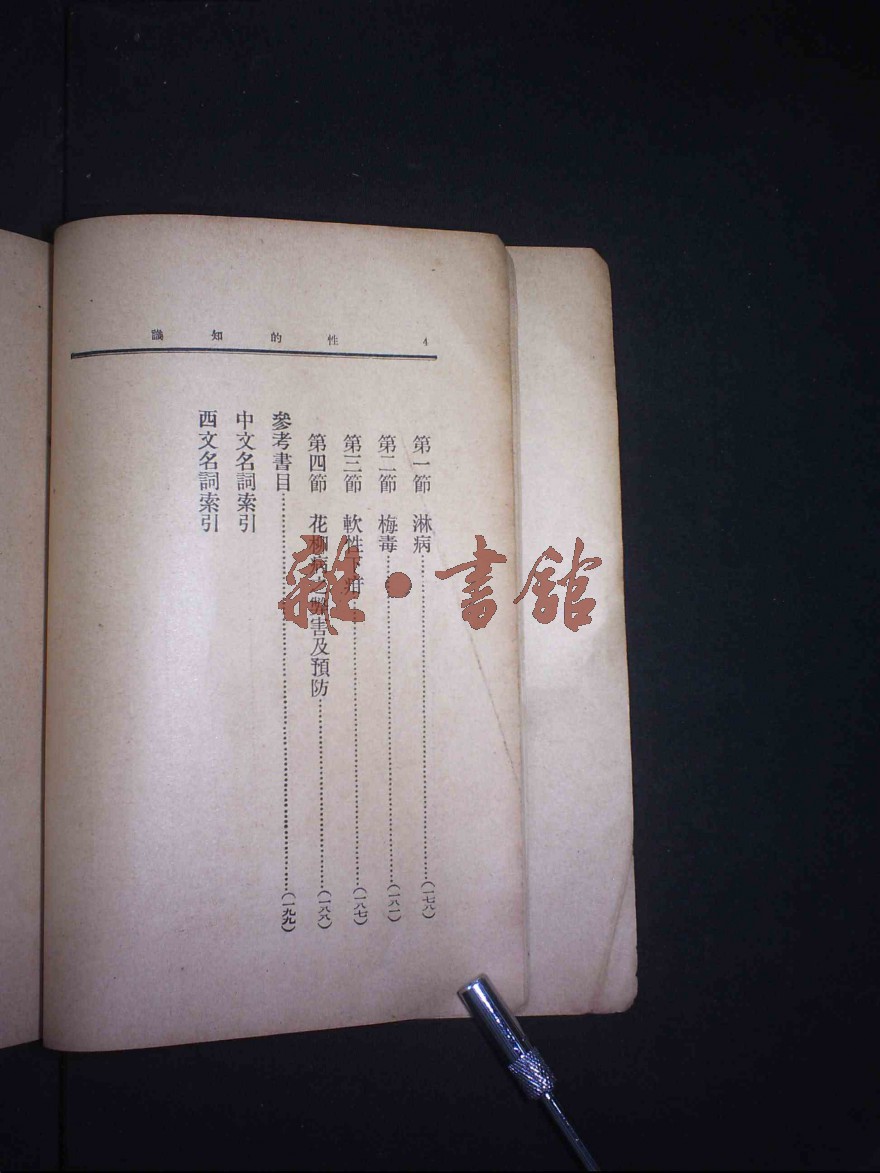 4 性的知識
第一節 淋病……(一七八)
第二節 梅毒……(一八一)
第三節 軟性下疳……(一八七)
第四節 花柳病之弊害及預防……(一八八)
參考書目……(一九九)
中文名詞索引
西文名詞索引
雜·書館